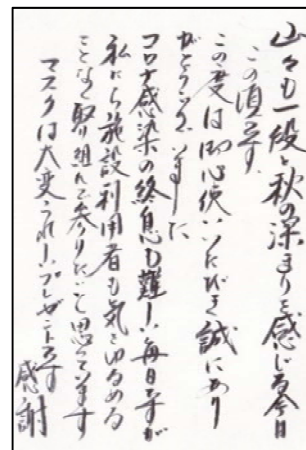 山々も一段と秋の深まりを感じる今日
この頃です。
この度は御心使いいただき誠にあり
がとうございました
コロナ感染の終息も難しい毎日ですが
私たち施設利用者も気をゆるめる
ことなく取り組んで参りたいと思っています
マスクは大変うれしいプレゼントです
感謝